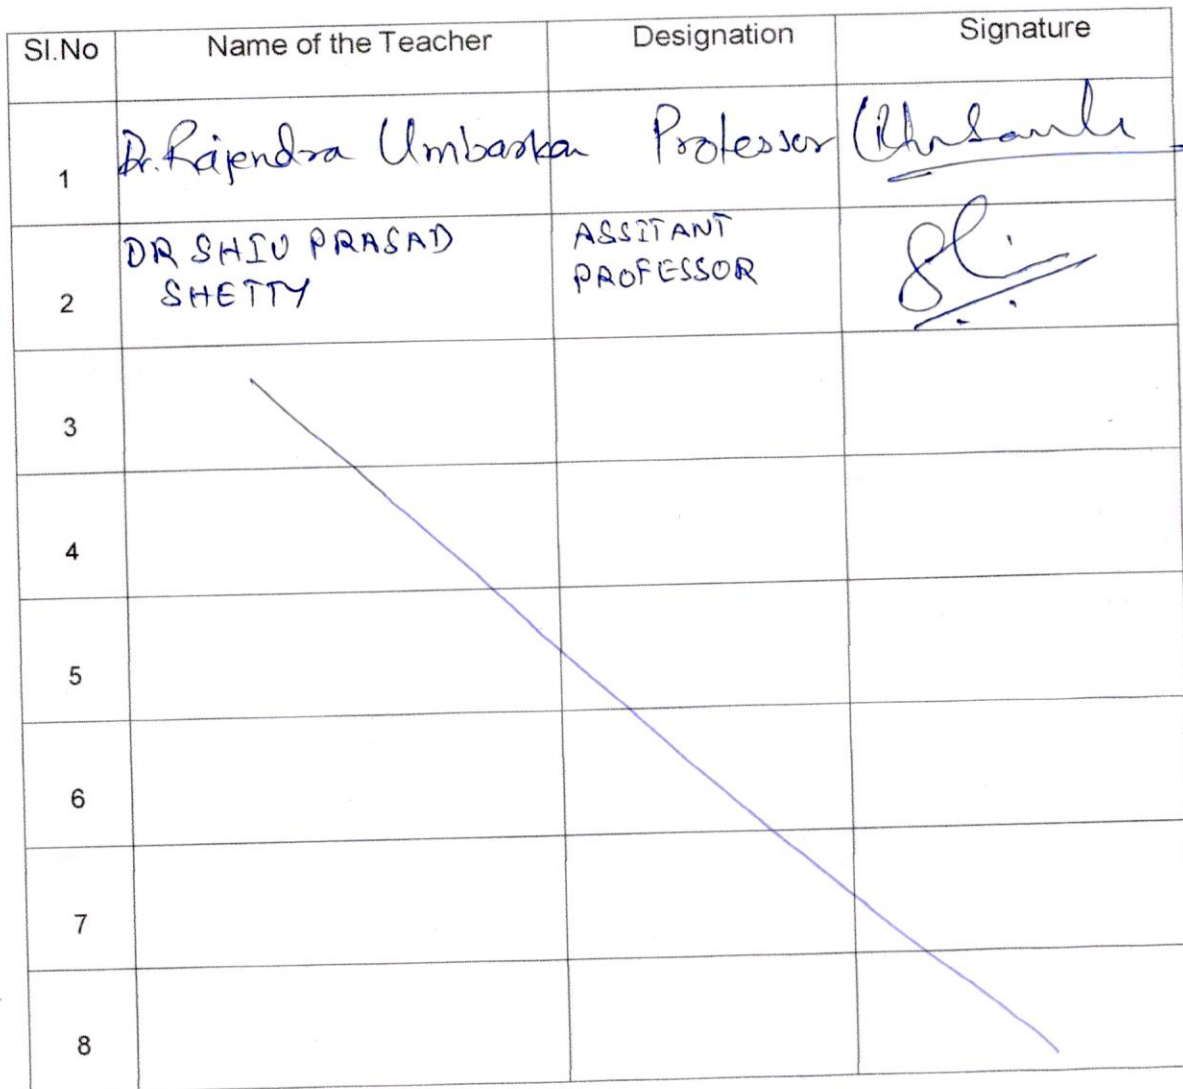 Sl.No Name of the Teacher Designation Signature
1 Dr. Rajendra Umbarkar Professor
2 DR SHIV PRASAD ASSITANT
SHETTY PROFESSOR
3
4
5
6
7
8